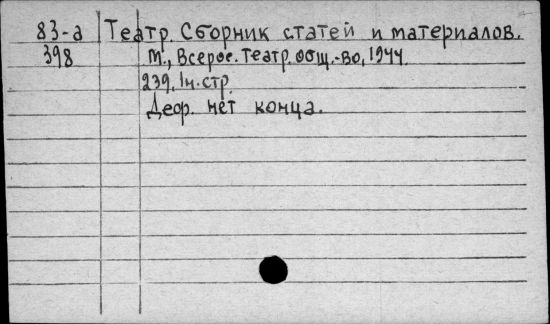 83-а Театр. Сборник статей и материалов.
398 М., Всерос. театр. общ.-во, 1944.
239, 1н. стр.
Деф. нет конца.